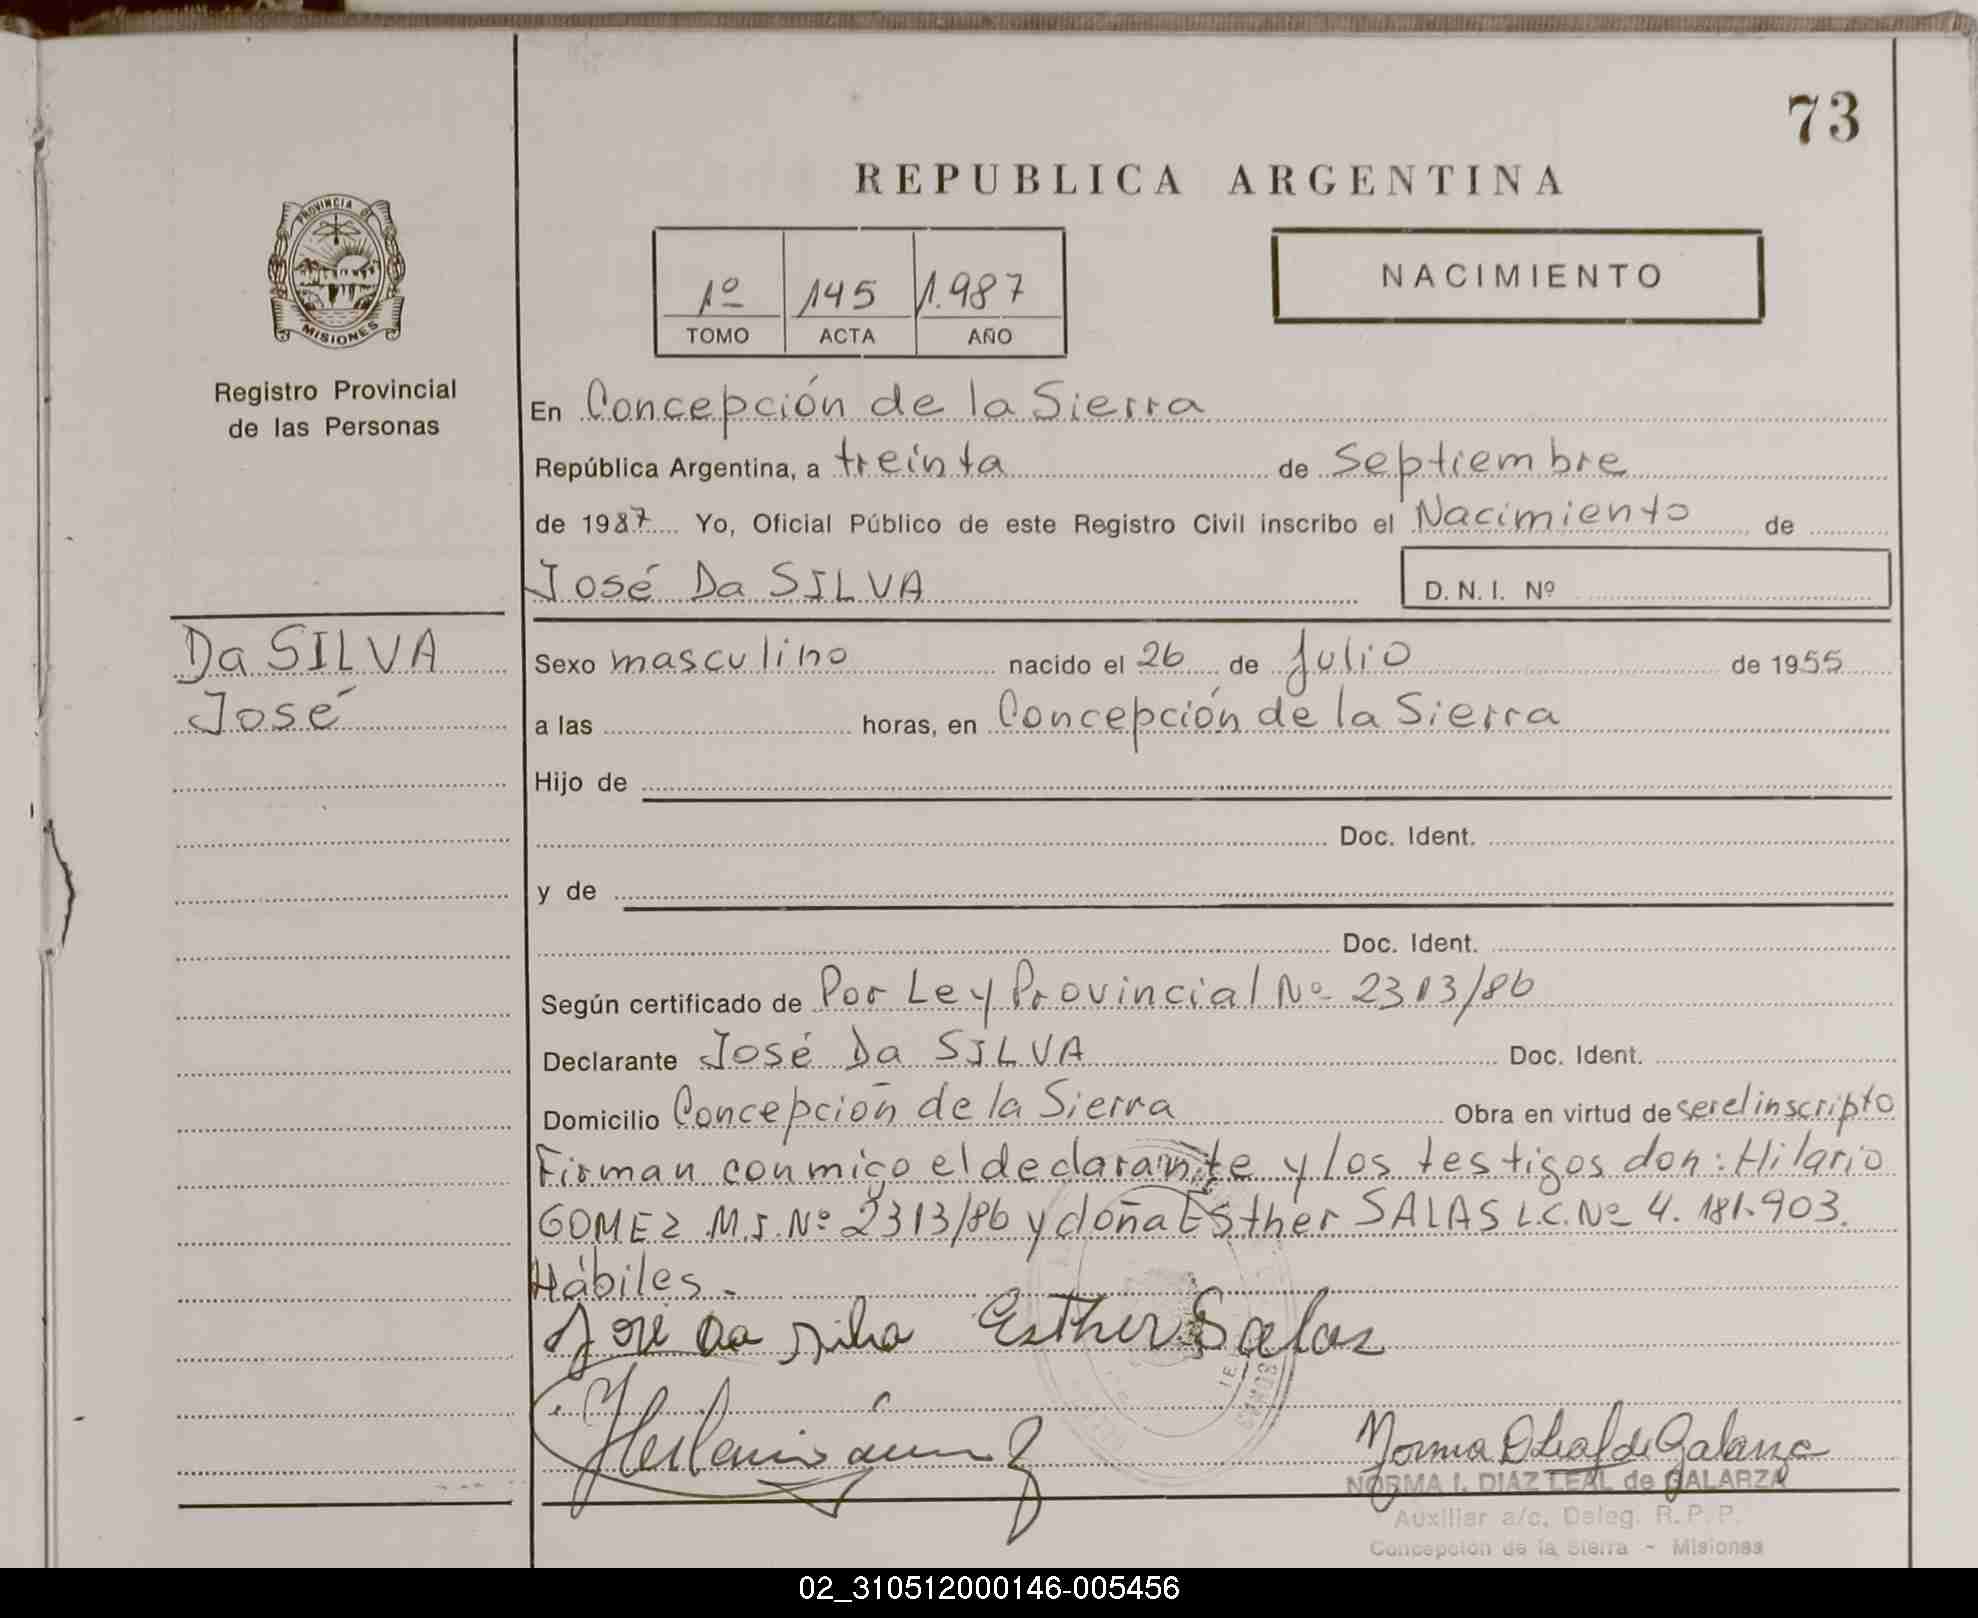 73
REPUBLICA ARGENTINA
PROVINCIA DE
MISIONES
1º 145 1.987
TOMO ACTA AÑO
NACIMIENTO
Registro Provincial
de las Personas
En Concepción de la Sierra
República Argentina, a treinta de Septiembre
de 1987 Yo, Oficial Público de este Registro Civil inscribo el Nacimiento de
José Da SILVA
D. N. I. Nº
Da SILVA
José
Sexo masculino nacido el 26 de Julio de 1955
a las horas, en Concepción de la Sierra
Hijo de
Doc. Ident.
y de
Doc. Ident.
Según certificado de Por Ley Provincial Nº 2313/86
Declarante José Da SILVA Doc. Ident.
Domicilio Concepción de la Sierra Obra en virtud de ser el inscripto
Firman conmigo el declarante y los testigos don: Hilario
GOMEZ M.I. Nº 2313/86 y doña Esther SALAS L.C. Nº 4.181.903.
Hábiles.-
José da silva Esther Salas
Norma D Leal de Galarza
NORMA I. DIAZ LEAL de GALARZA
Auxiliar a/c. Deleg. R. P. P.
Concepción de la Sierra - Misiones
02_310512000146-005456